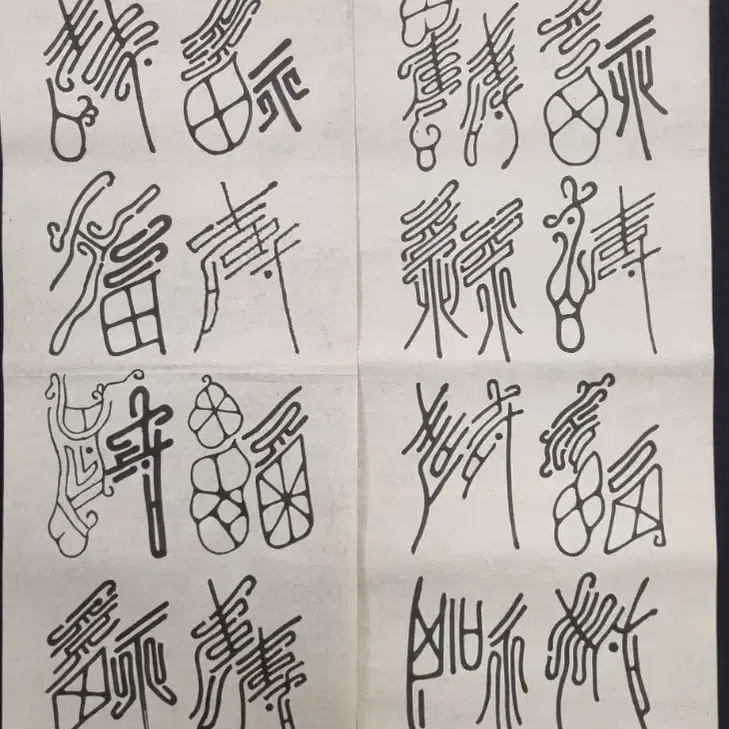 壽福壽福
福壽福壽
壽福壽福
福壽福壽